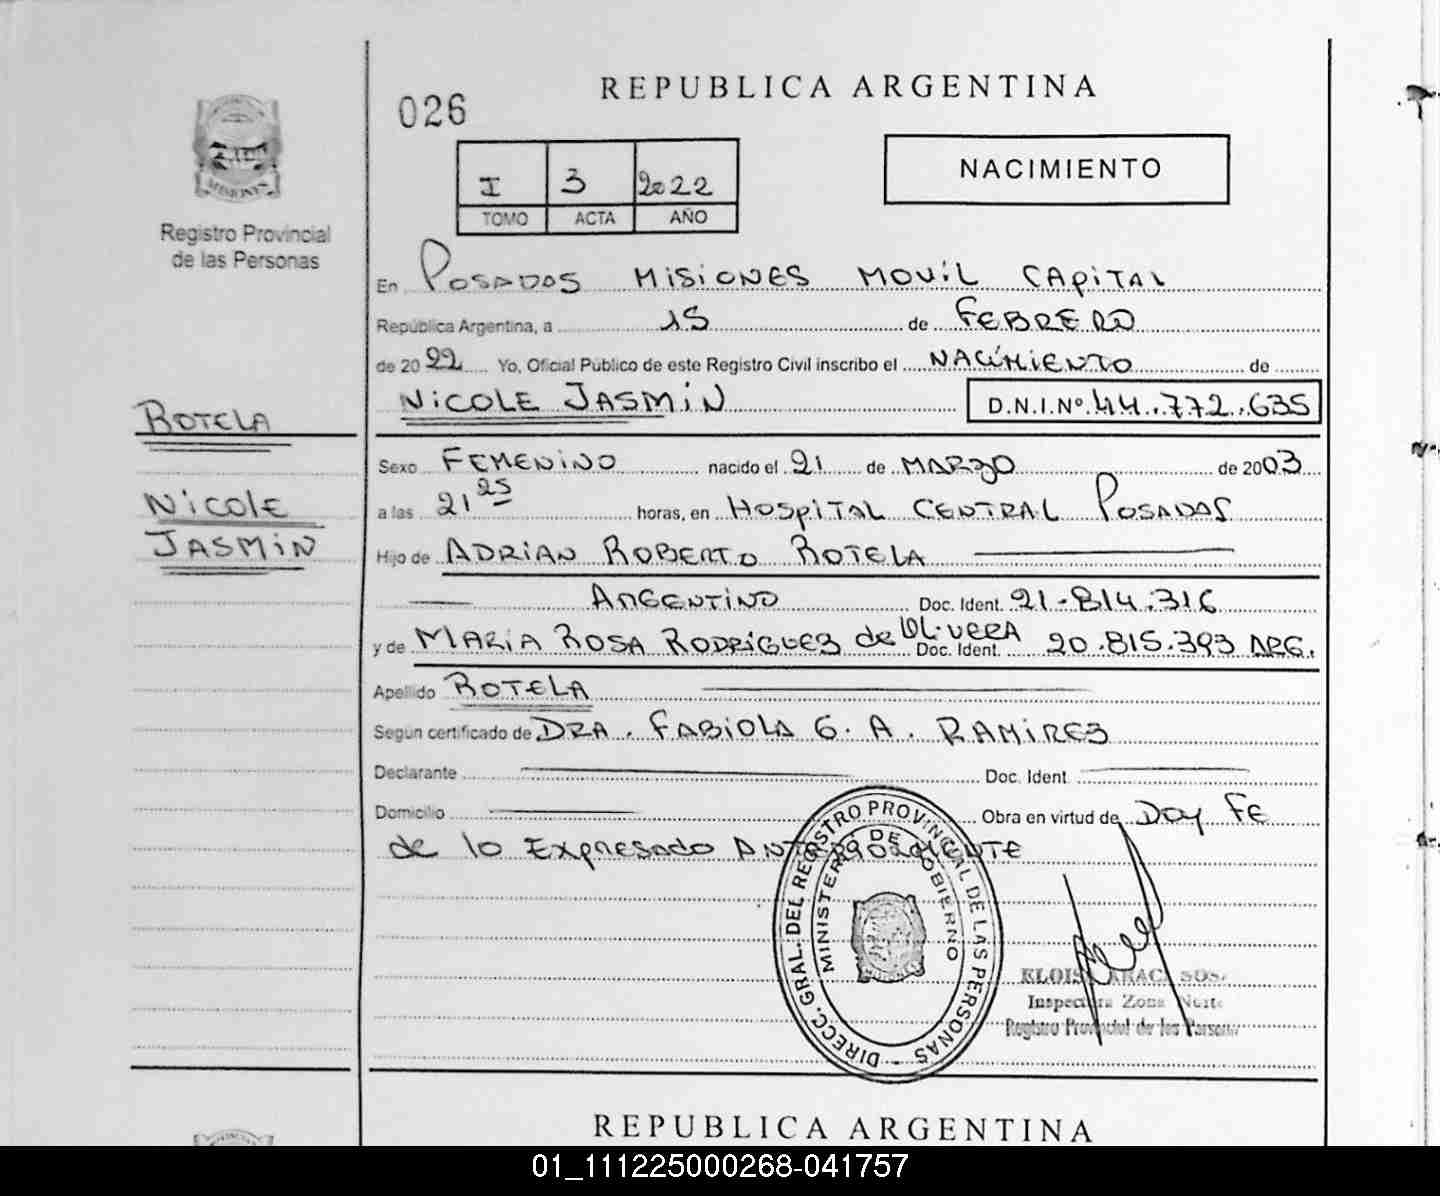 REPUBLICA ARGENTINA
026
NACIMIENTO
I 3 2022
TOMO ACTA AÑO
MISIONES
Registro Provincial
de las Personas
En POSADAS MISIONES MOVIL CAPITAL
República Argentina, a 15 de FEBRERO
de 2022 Yo, Oficial Público de este Registro Civil inscribo el NACIMIENTO de
NICOLE JASMIN D.N.I.Nº 44.772.635
ROTELA
NICOLE
JASMIN
Sexo FEMENINO nacido el 21 de MARZO de 2003
a las 21 25 horas, en HOSPITAL CENTRAL POSADAS
Hijo de ADRIAN ROBERTO ROTELA
ARGENTINO Doc. Ident. 21.814.316
y de MARIA ROSA RODRIGUEZ de OLIVERA Doc. Ident. 20.815.393 ARG.
Apellido ROTELA
Según certificado de DRA. FABIOLA G. A. RAMIREZ
Declarante Doc. Ident.
Domicilio Obra en virtud de Doy FE
de lo Expresado ANTERIORMENTE
DIRECC. GRAL. DEL REGISTRO PROVINCIAL DE LAS PERSONAS
MINISTERIO DE GOBIERNO
MISIONES
ELOISA SOSA
Inspectora Zona Norte
Registro Provincial de las Personas
REPUBLICA ARGENTINA
01_111225000268-041757